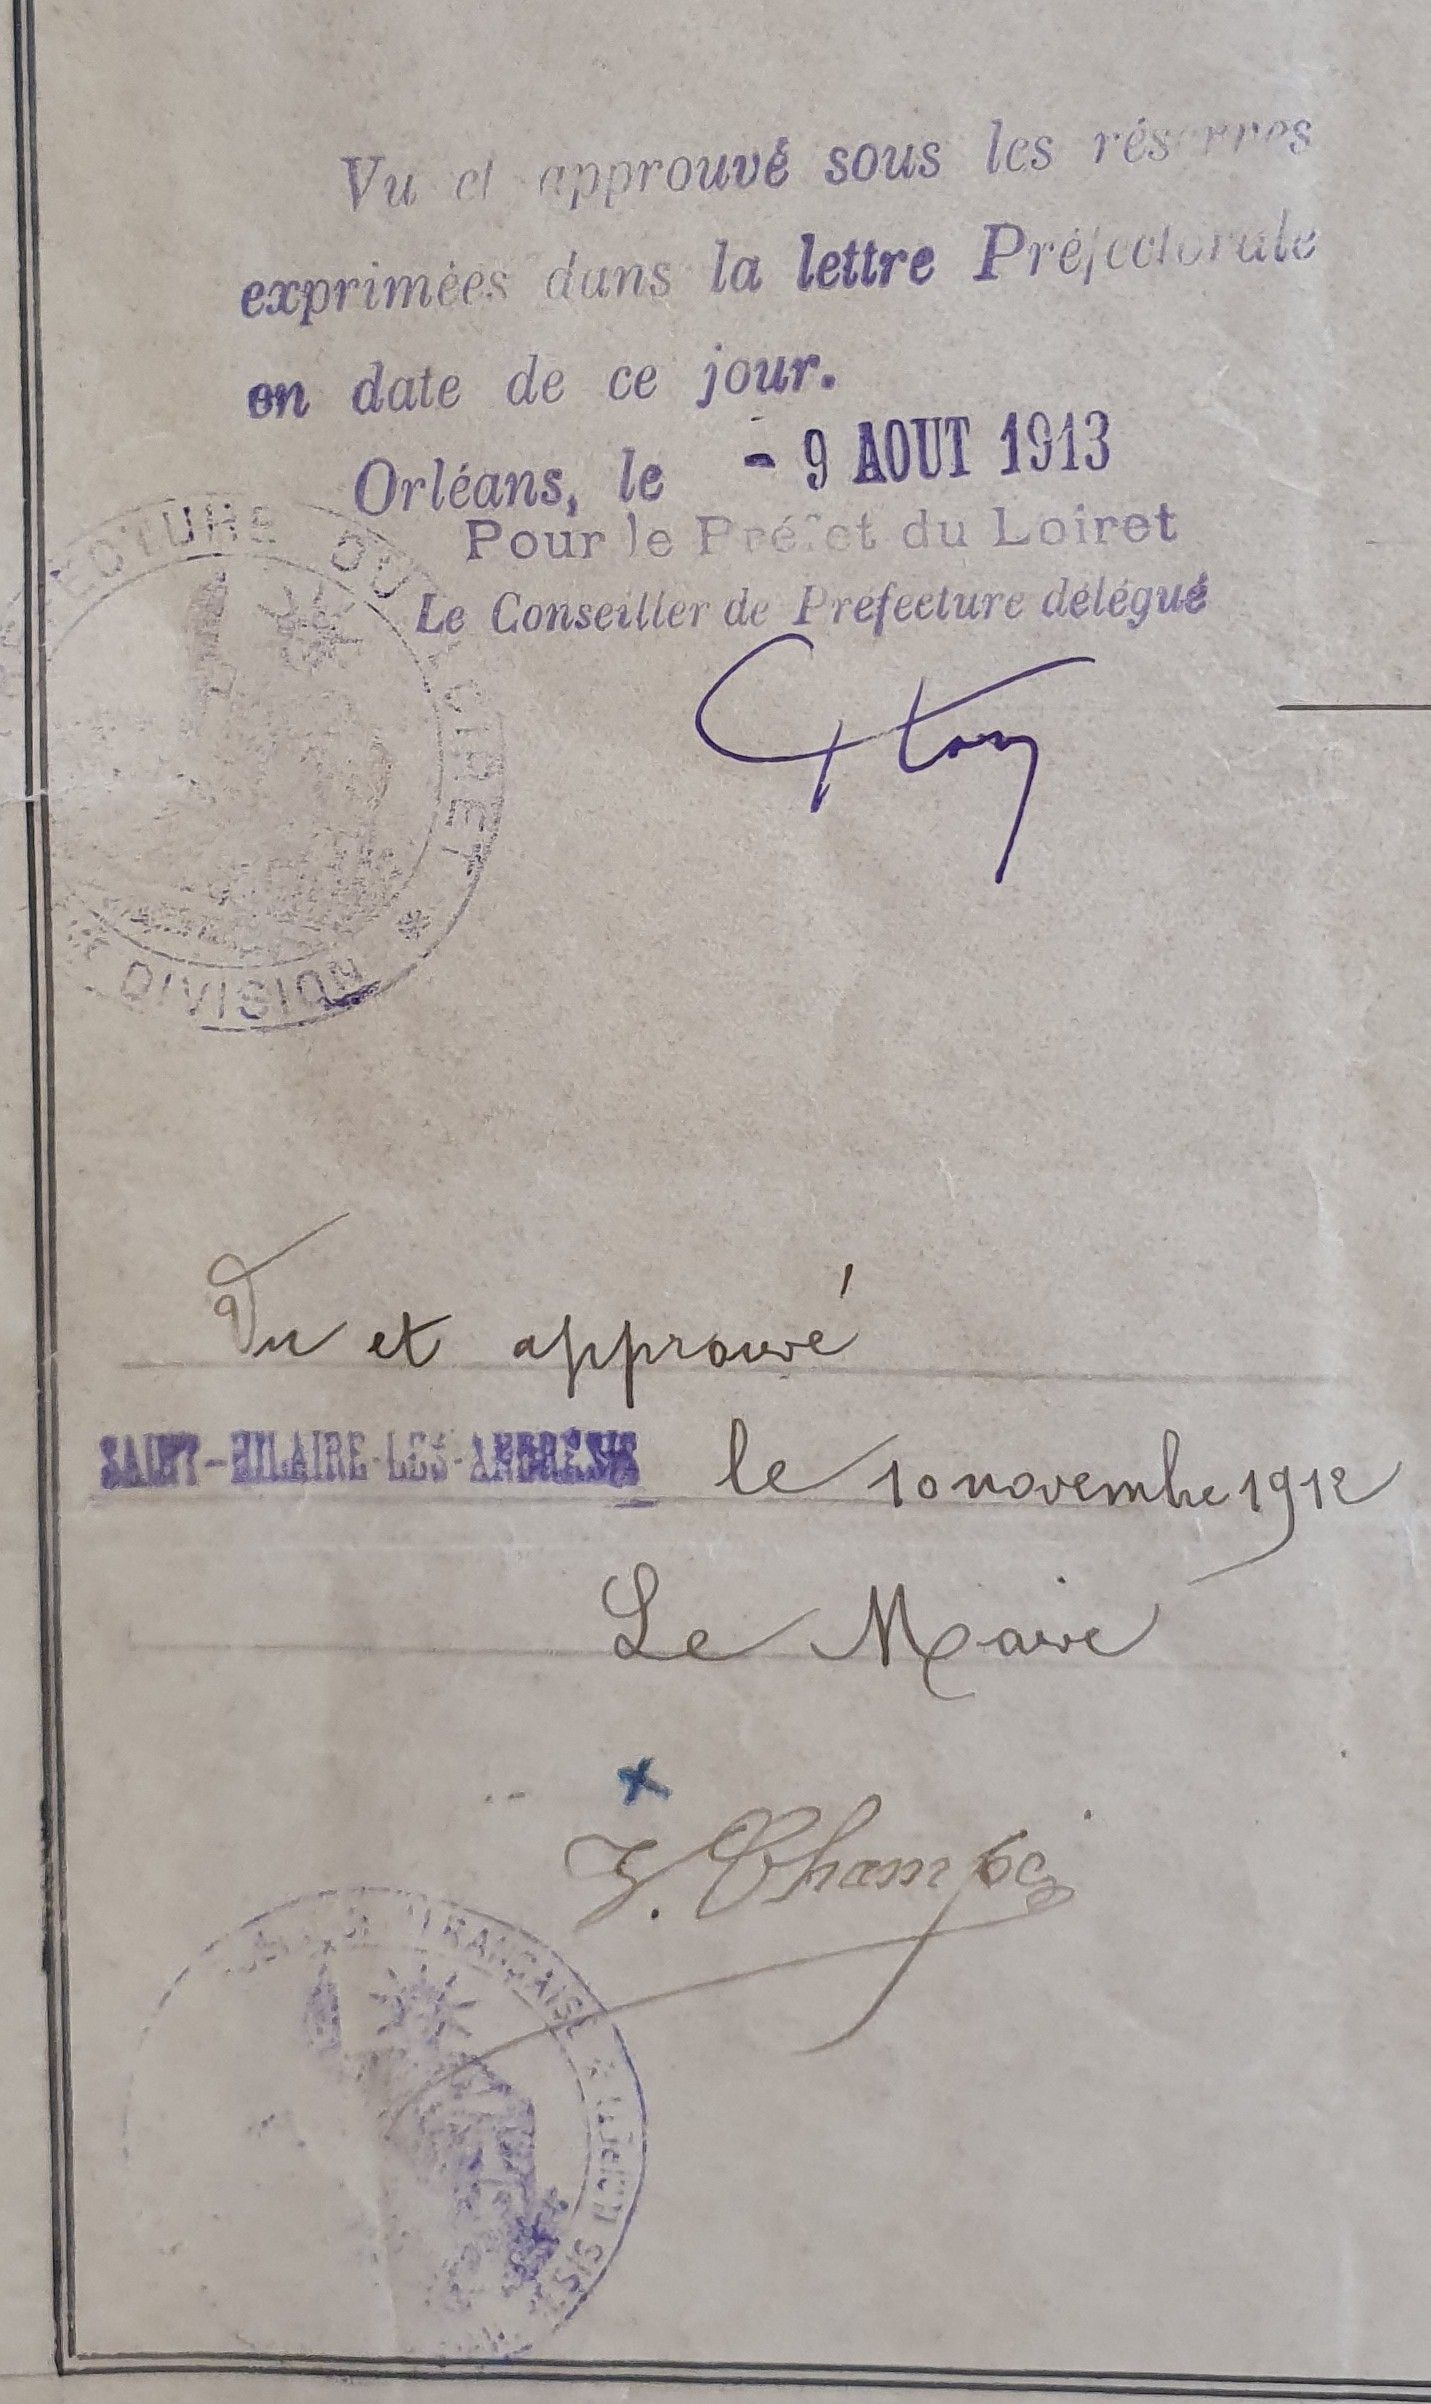 Vu et approuvé sous les réserves
exprimées dans la lettre Préfectorale
en date de ce jour.
Orléans, le - 9 AOUT 1913
Pour le Préfet du Loiret
Le Conseiller de Préfecture délégué
PRÉFECTURE DU LOIRET
* DIVISION *
Vu et approuvé
SAINT-HILAIRE-LES-ANDRÉSIS le 10 novembre 1912
Le Maire
x
FRANÇAISE